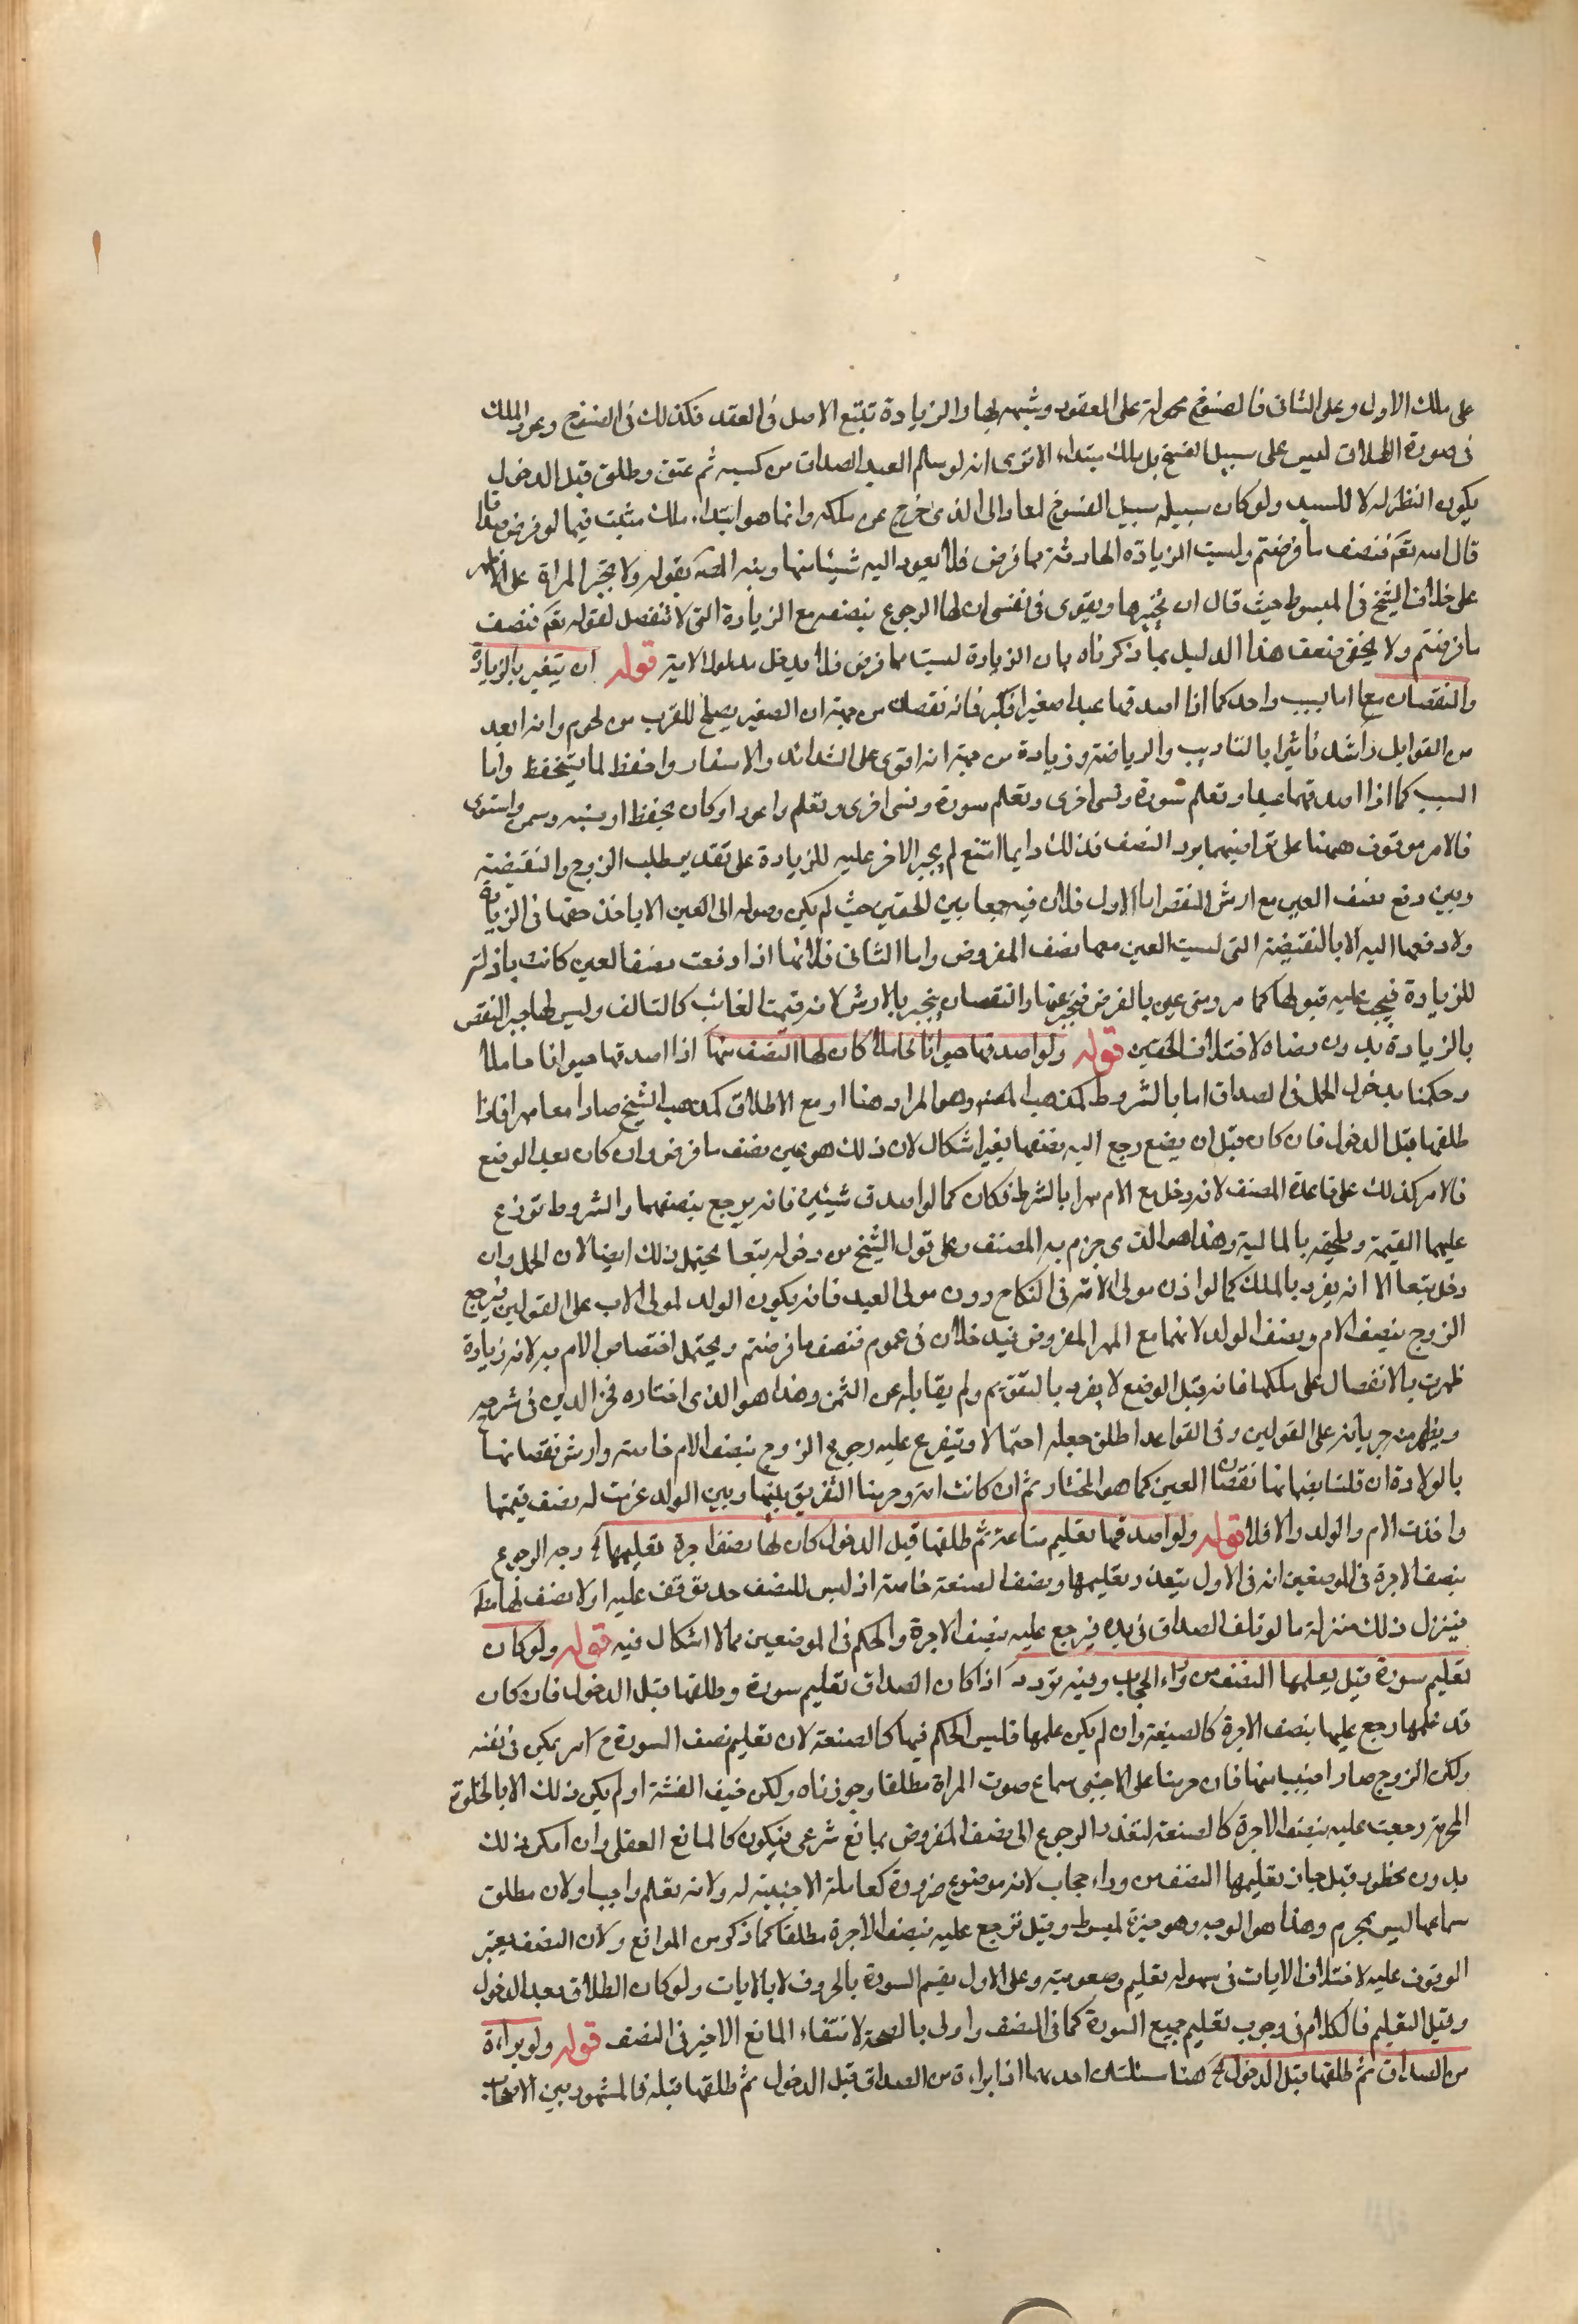 على ملك الاول وعلى الثانى فالفسوخ محمولة على العقود وشبهه بها والزيادة تتبع الاصل فى العقد فكذلك فى الفسوخ وعود الملك
فى صورة الطلاق ليس على سبيل الفسخ بل ملك مبتداء الا ترى انه لو سلم العبد الصداق من كسبه ثم عتق وطلق قبل الدخول
يكون النظر له لا للسيد ولو كان سبيله سبيل الفسوخ لعاد الى الذى خرج عن ملكه وانما هو ابتداء ملك مثبت فيما لو فرض صداقا
قال الله تعم فنصف ما فرضتم وليست الزيادة الحادثة مما فرض فلا يعود اليه شيئا منها ونبه المصه بقوله ولا تجبر المراة على الاظهر
على خلاف الشيخ فى المبسوط حيث قال ان تجبرها ويقوى فى نفسى ان لها الرجوع بنصفه مع الزيادة التى لا تنفصل لقوله تعم فنصف
ما فرضتم ولا يخفى ضعف هذا الدليل بما ذكرناه بان الزيادة ليست مما فرض فلا يدخل مدلول الاية قوله ان يتغير بالزيادة
والنقصان معا اما بسبب واحد كما اذا اصدقها عبدا صغيرا فكبر فانه نقصان من جهة ان الصغير يصلح للقرب من لحرم وانه ابعد
من الغوايل واشد تأثيرا بالتاديب والرياضة وزيادة من جهة انه اقوى على الشدائد والاسفار واحفظ لما يستحفظ واما
السبب كما اذا اصدقها عبدا وتعلم سورة ونسى اخرى وتعلم سورة ونسى اخرى وتعلم واعور او كان يحفظ اوسنه وسمن واستوى
فالامر موقوف ههنا على تراضيهما برد النصف فذلك دايما امتنع لم يجبر الاخر عليه للزيادة على تقدير مطلب الزوج والنقيضة
وبين دفع نصف العين مع ارش النقص اما الاول فلان فيه جمعا بين الحقين حيث لم يكن وصوله الى العين الا باخذ حقها فى الزيادة
ولا دفعها اليه الا بالنقيضة التى ليست العين معها نصف المفروض واما الثانى فلانها اذا دفعت نصف العين كانت باذلة
للزيادة فيجب عليه قبولها كما مر ومتى عين بالفرض فتجبر عنها والنقصان ينجبر بالارش لانه قيمت الغائب كالتالف وليس لها جبر النقص
بالزيادة بدون رضاه لاختلاف الحقين قوله ولو اصدقها حيوانا حاملا كان لها النصف منها اذا اصدقها حيوانا حاملا
وحكمنا بدخول الحمل فى الصداق اما بالشروط كمذهب المصنف وهو المراد هنا او مع الاطلاق كمذهب الشيخ صارا معا مهرا فاذا
طلقها قبل الدخول فان كان قبل ان يضع رجع اليه نصفها بغير اشكال لان ذلك هو عين نصف ما فرض وان كان بعد الوضع
فالامر كذلك على قاعدة المصنف لانه دخل مع الام مهرا بالشرط فكان كما لو اصدق شيئين فانه يرجع بنصفهما والشروط توزع
عليهما القيمة ويلحقه بالمالية وهذا هو الذى جزم به المصنف وعلى قول الشيخ من دخوله تبعا يحتمل ذلك ايضا لان الحمل وان
دخل تبعا الا انه يفرد بالملك كما لو اذن مولى الامة فى النكاح دون مولى العبد فانه يكون الولد لمولى الاب على القولين فيرجع
الزوج بنصف الام ونصف الولد لانهما مع المهر المفروض فيدخلان فى عموم فنصف ما فرضتم ويحتمل اختصاص الام به لانه زيادة
ظهرت بالانفصال على ملكها فانه قبل الوضع لا يفرد بالتقويم ولم يقابله عن الثمن وهذا هو الذى اختاره فخر الدين فى شرحه
ويظهر منه جريانه على القولين وفى القواعد اطلق جعله احتمالا ويتفرع عليه رجوع الزوج بنصف الام خاصة وارش نقصانها
بالولادة ان قلنا بضمانها نقصان العين كما هو المختار ثم ان كانت امة وحرمنا التفريق بينها وبين الولد غرمت له نصف قيمتها
واخذت الام والولد والا فلا قوله ولو اصدقها تعليم صناعة ثم طلقها قبل الدخول كان لها نصف اجرة تعليمها الخ وجه الرجوع
بنصف الاجرة فى الموضعين انه فى الاول يتعذر تعليمها ونصف الصنعة خاصة اذ ليس للنصف حد يقف عليه او لا نصف لها مط
فينزل ذلك منزلة ما لو تلف الصداق فى يده فيرجع عليه بنصف الاجرة والحكم فى الموضعين مما لا اشكال فيه قوله ولو كان
تعليم سورة قيل يعلمها النصف من وراء الحجاب وفيه تردد اذا كان الصداق تعليم سورة وطلقها قبل الدخول فان كان
قد علمها رجع عليها بنصف الاجرة كالصنعة وان لم يكن علمها فليس الحكم فيها كالصنعة لان تعليم نصف السورة ح امر يمكن فى نفسه
ولكن الزوج صار اجنبيا منها فان حرمنا على الاجنبى سماع صوت المراة مطلقا وجوزناه ولكن خيف الفتنة او لم يكن ذلك الا بالخلوة
المحرمة رجعت عليه بنصف الاجرة كالصنعة لتعذر الرجوع الى نصف المفروض بمانع شرعى فيكون كالمانع العقلى وان امكن ذلك
بدون محظور قبل جاز تعليمها النصف من وراء حجاب لانه موضوع ضرورة كمعاملة الاجنبية له ولانه تعلم واجبا ولان مطلق
سماعها ليس بمحرم وهذا هو الوجه وهو خيرة لمبسوط وقيل ترجع عليه بنصف الاجرة مطلقا كما ذكر من الموانع ولان النصف يعتبر
الوقوف عليه لاختلاف الايات فى سهوله تعليم وصعوبته وعلى الاول يقسم السورة بالحروف لا بالايات ولو كان الطلاق بعد الدخول
وقبل التعليم فالكلام فى وجوب تعليم جميع السورة كما فى النصف واولى بالصحة لانتفاء المانع الاخير فى النصف قوله ولو براءة
من الصداق ثم طلقها قبل الدخول الخ هنا مسئلتان احدهما اذا براءة من الصداق قبل الدخول ثم طلقها قبله فالمشهور بين الاصحاب